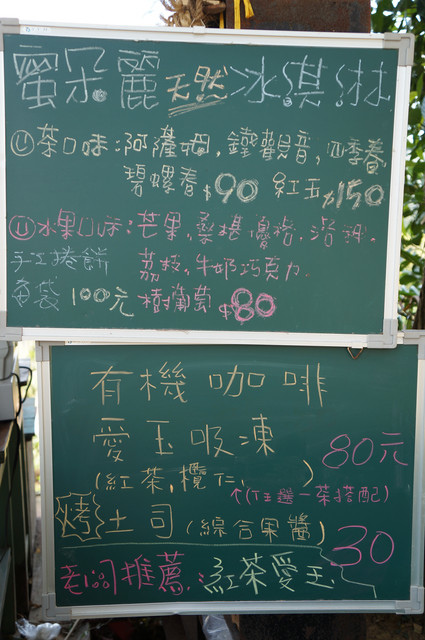 蜜朵麗天然冰淇淋
茶口味:阿薩姆,鐵觀音,四季春
碧螺春$90 紅玉$150
水果口味:芒果,桑椹優格,洛神,
手工捲餅 荔枝,牛奶巧克力.
每袋 100元 樹葡萄 $80
有機咖啡
愛玉吸凍 80元
(紅茶,欖仁, )
↑(任選一茶搭配)
烤土司(綜合果醬) 30
老闆推薦:紅茶愛玉